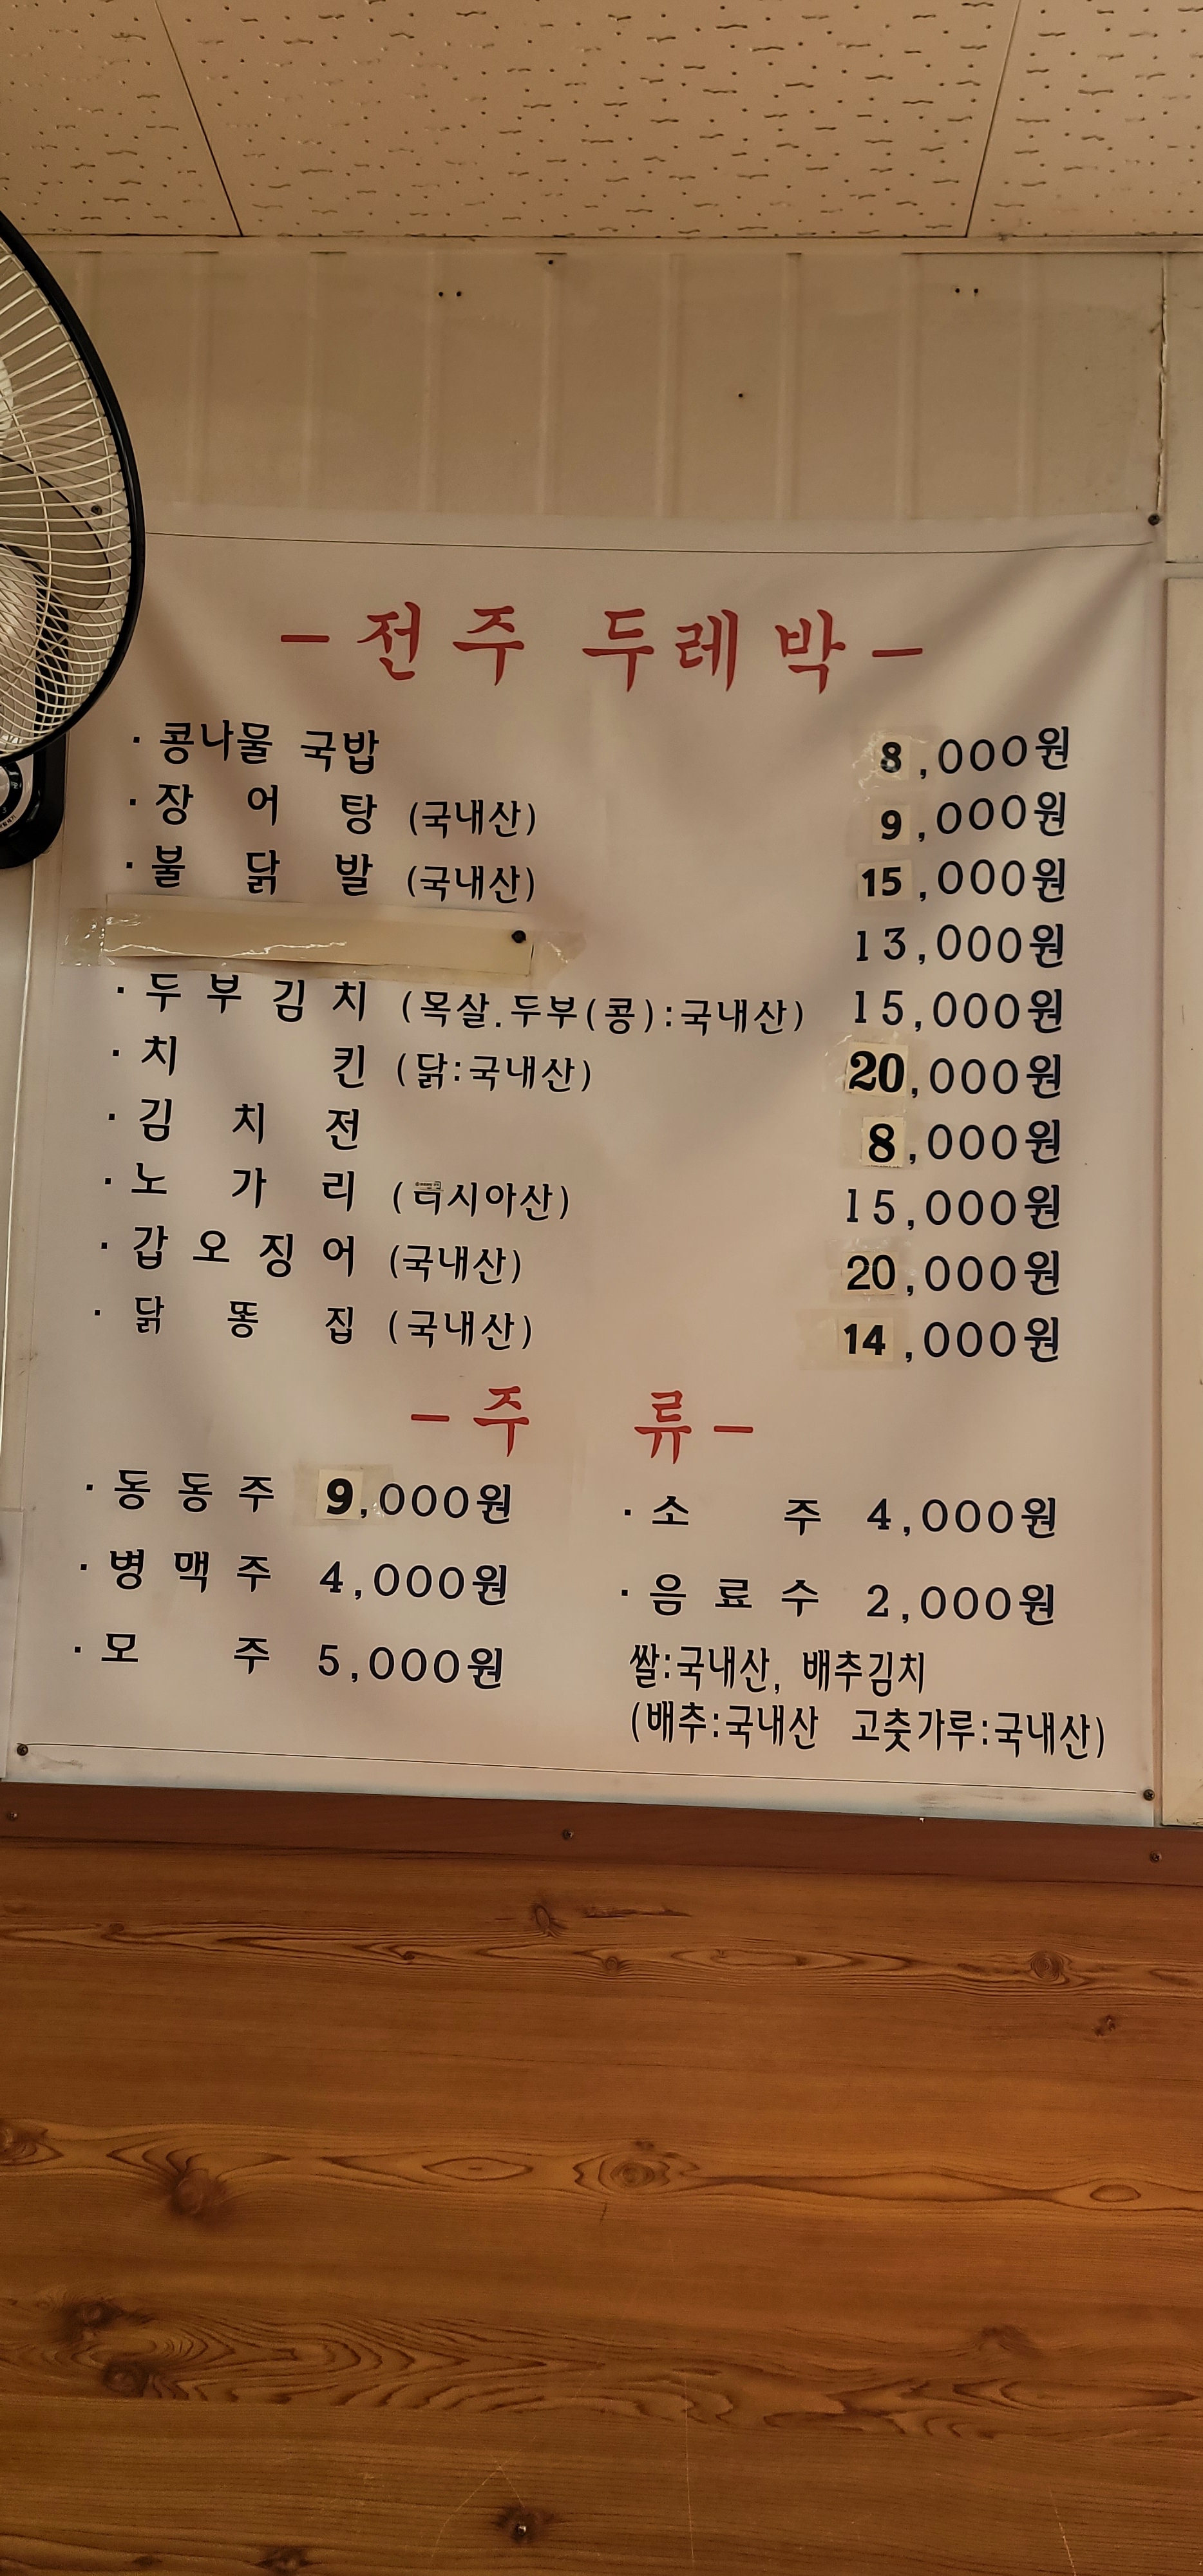 -전주 두레박-
·콩나물 국밥 8,000원
·장 어 탕 (국내산) 9,000원
·불 닭 발 (국내산) 15,000원
13,000원
·두부김치 (목살.두부(콩):국내산) 15,000원
·치 킨 (닭:국내산) 20,000원
·김 치 전 8,000원
·노 가 리 (러시아산) 15,000원
·갑오징어 (국내산) 20,000원
·닭 똥 집 (국내산) 14,000원
-주 류-
·동동주 9,000원 ·소 주 4,000원
·병맥주 4,000원 ·음료수 2,000원
·모 주 5,000원
쌀:국내산, 배추김치
(배추:국내산 고춧가루:국내산)